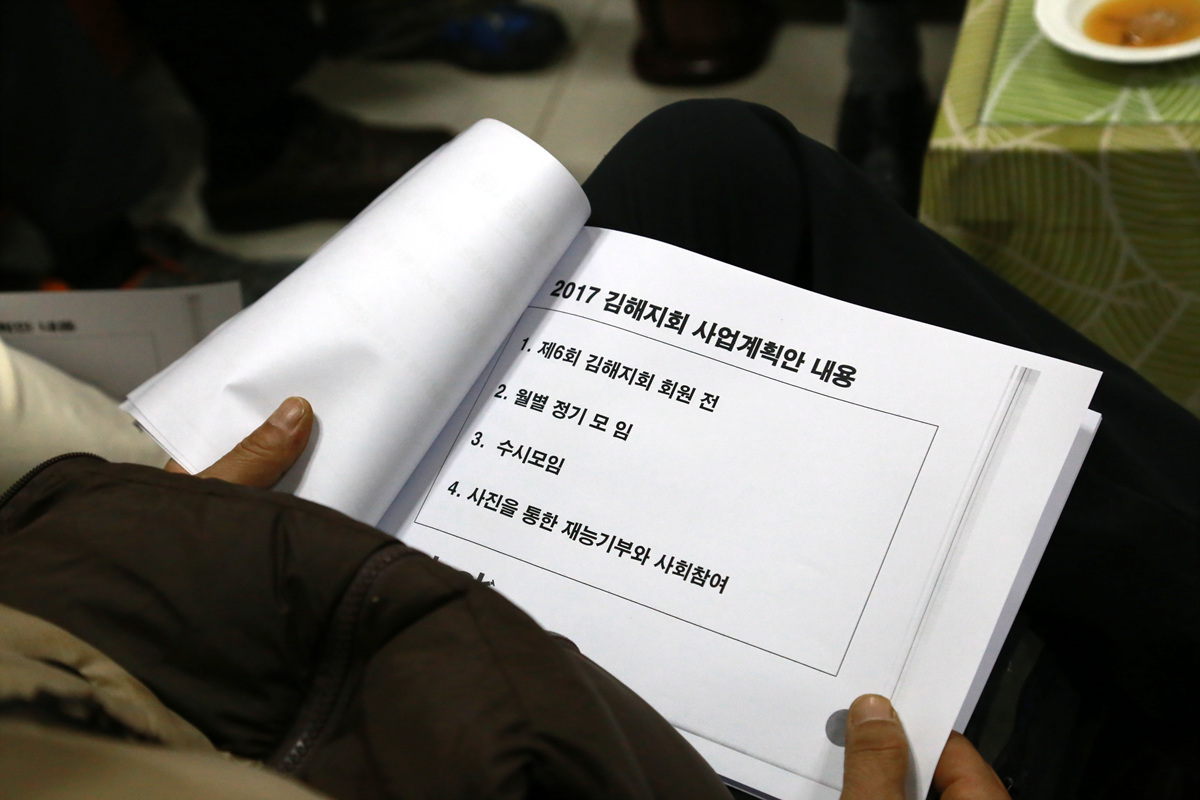 2017 김해지회 사업계획안 내용
1. 제6회 김해지회 회원 전
2. 월별 정기 모 임
3. 수시모임
4. 사진을 통한 재능기부와 사회참여
내용